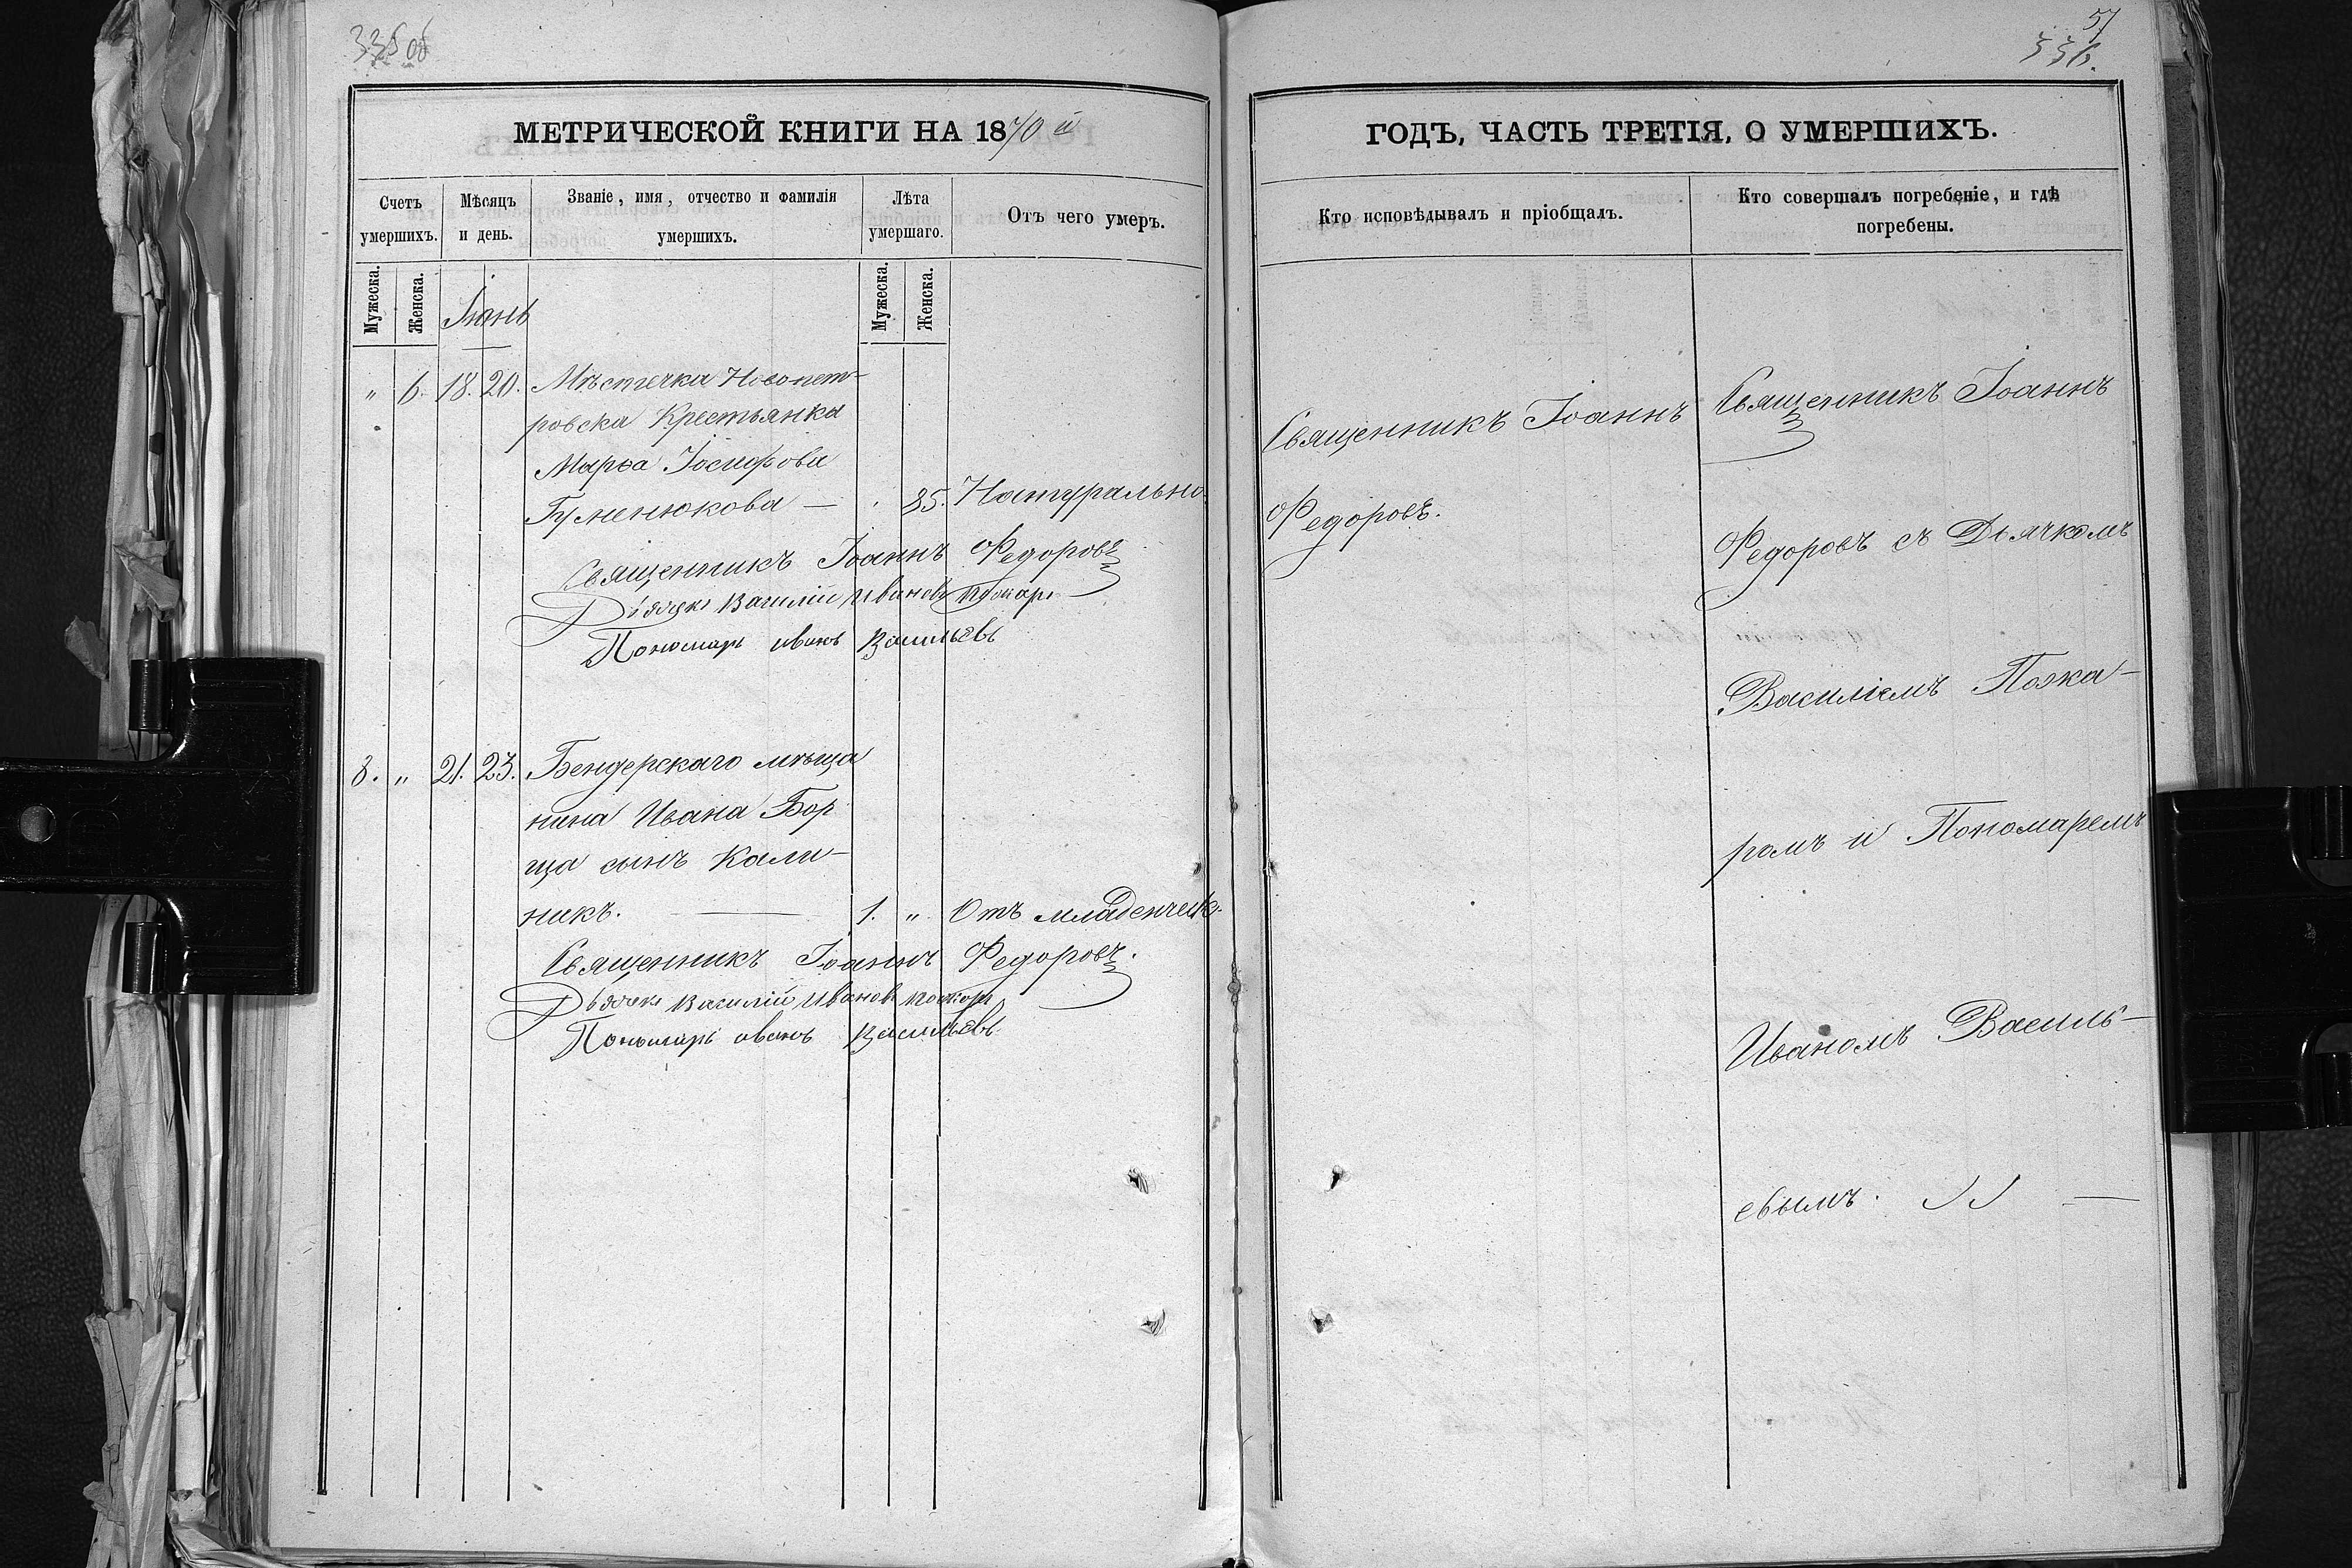 335 об
МЕТРИЧЕСКОЙ КНИГИ НА 1870 й
Счетъ умершихъ.
Мѣсяцъ и день.
Званіе, имя, отчество и фамилія умершихъ.
Лѣта умершаго.
Отъ чего умеръ.
Мужеска.
Женска.
Іюнь
Мужеска.
Женска.
„ 6. 18. 20. Мѣстечка Новопет-
ровска Крестьянка
Марѳа Іосифова
Гуменюкова — 85. Натурально.
Священникъ Іоаннъ Федоровъ
Дьячекъ Василій Ивановъ
Пономарь иванъ Васильевъ
8. „ 21. 23. Бендерскаго мѣща
нина Ивана Бор
ща сынъ Кали-
никъ. — 1. „ Отъ младенческ.
Священникъ Іоаннъ Федоровъ.
Дьячекъ Василій Ивановъ
Пономарь иванъ Васильевъ
57
336.
ГОДЪ, ЧАСТЬ ТРЕТІЯ, О УМЕРШИХЪ.
Кто исповѣдывалъ и пріобщалъ.
Кто совершалъ погребеніе, и гдѣ
погребены.
Священникъ Іоаннъ
Федоровъ.
Священникъ Іоаннъ
Федоровъ съ Дьячкомъ
Василіемъ Пожа-
ромъ и Пономаремъ
Иваномъ Василь-
евымъ.